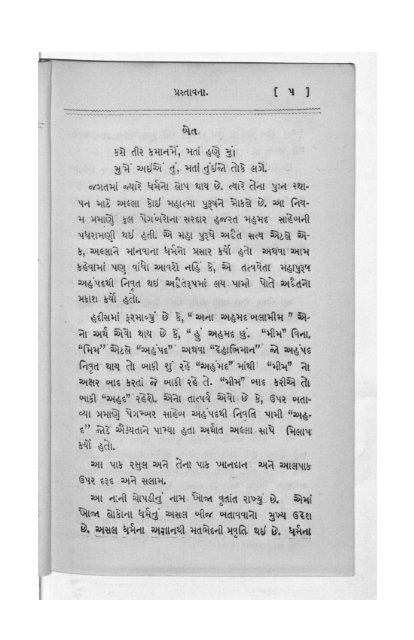 પ્રસ્તાવના. [ ૫ ]
બેત.
કસે તીર કમાનમેં, મતાં હણે મું;
મુમેં અઈએં તું, મતાં તુંઈજે તોકે લગેં.
જગતમાં જ્યારે ધર્મનો લોપ થાય છે. ત્યારે તેના પુન સ્થા-
પન માટે અલ્લા કોઈ મહાત્મા પુરૂષને મોકલે છે. આ નિય-
મ પ્રમાણે કુલ પેગંબરોના સરદાર હજરત મહમદ સાહેબની
પધરામણી થઈ હતી. એ મહા પુરૂષે અદ્વૈત સત્ય એટલે એ-
ક, અલ્લાને માનવાના ધર્મનો પ્રસાર કર્યો હતો અથવા આમ
કહેવામાં પણ વાંધો આવશે નહિં કે, એ તત્વવેતા મહાપુરૂષ
અહંપદથી નિવૃત થઇ અદ્વૈતરૂપમાં લય પામી પોતે અદ્વૈતનો
પ્રકાશ કર્યો હતો.
હદીસમાં ફરમાવ્યું છે કે, “ અના અહમદ બલામીમ ” એ-
નો અર્થ એવો થાય છે કે, “ હું અહમદ છું. “મીમ” વિના.
“મિમ” એટલે “અહંપદ” અથવા “દેહાભિમાન” જો અહંપદ
નિવૃત થાય તો બાકી શું રહે “અહમદ” માંથી “મીમ” નો
અક્ષર બાદ કરતાં જે બાકી રહે તે. “મીમ” બાદ કરીએ તો
બાકી “અહદ” રહેશે. એનો તાત્પર્ય એવો છે કે, ઉપર બતા-
વ્યા પ્રમાણે પેગમ્બર સાહેબ અહંપદથી નિવૃતિ પામી “અહ-
દ” જોડે ઐક્યતાને પામ્યા હતા અર્થાત અલ્લા સાથે મિલાપ
કર્યો હતો.
આ પાક રસુલ અને તેના પાક ખાનદાન અને આલપાક
ઉપર દરૂદ અને સલામ.
આ નાની ચોપડીનું નામ ખોજા વૃતાંત રાખ્યું છે. એમાં
ખોજા લોકોના ધર્મનું અસલ બીજ બતાવવાનો મુખ્ય ઉદેશ
છે. અસલ ધર્મના અજ્ઞાનથી મતભેદની પ્રવૃતિ થઈ છે. ધર્મના